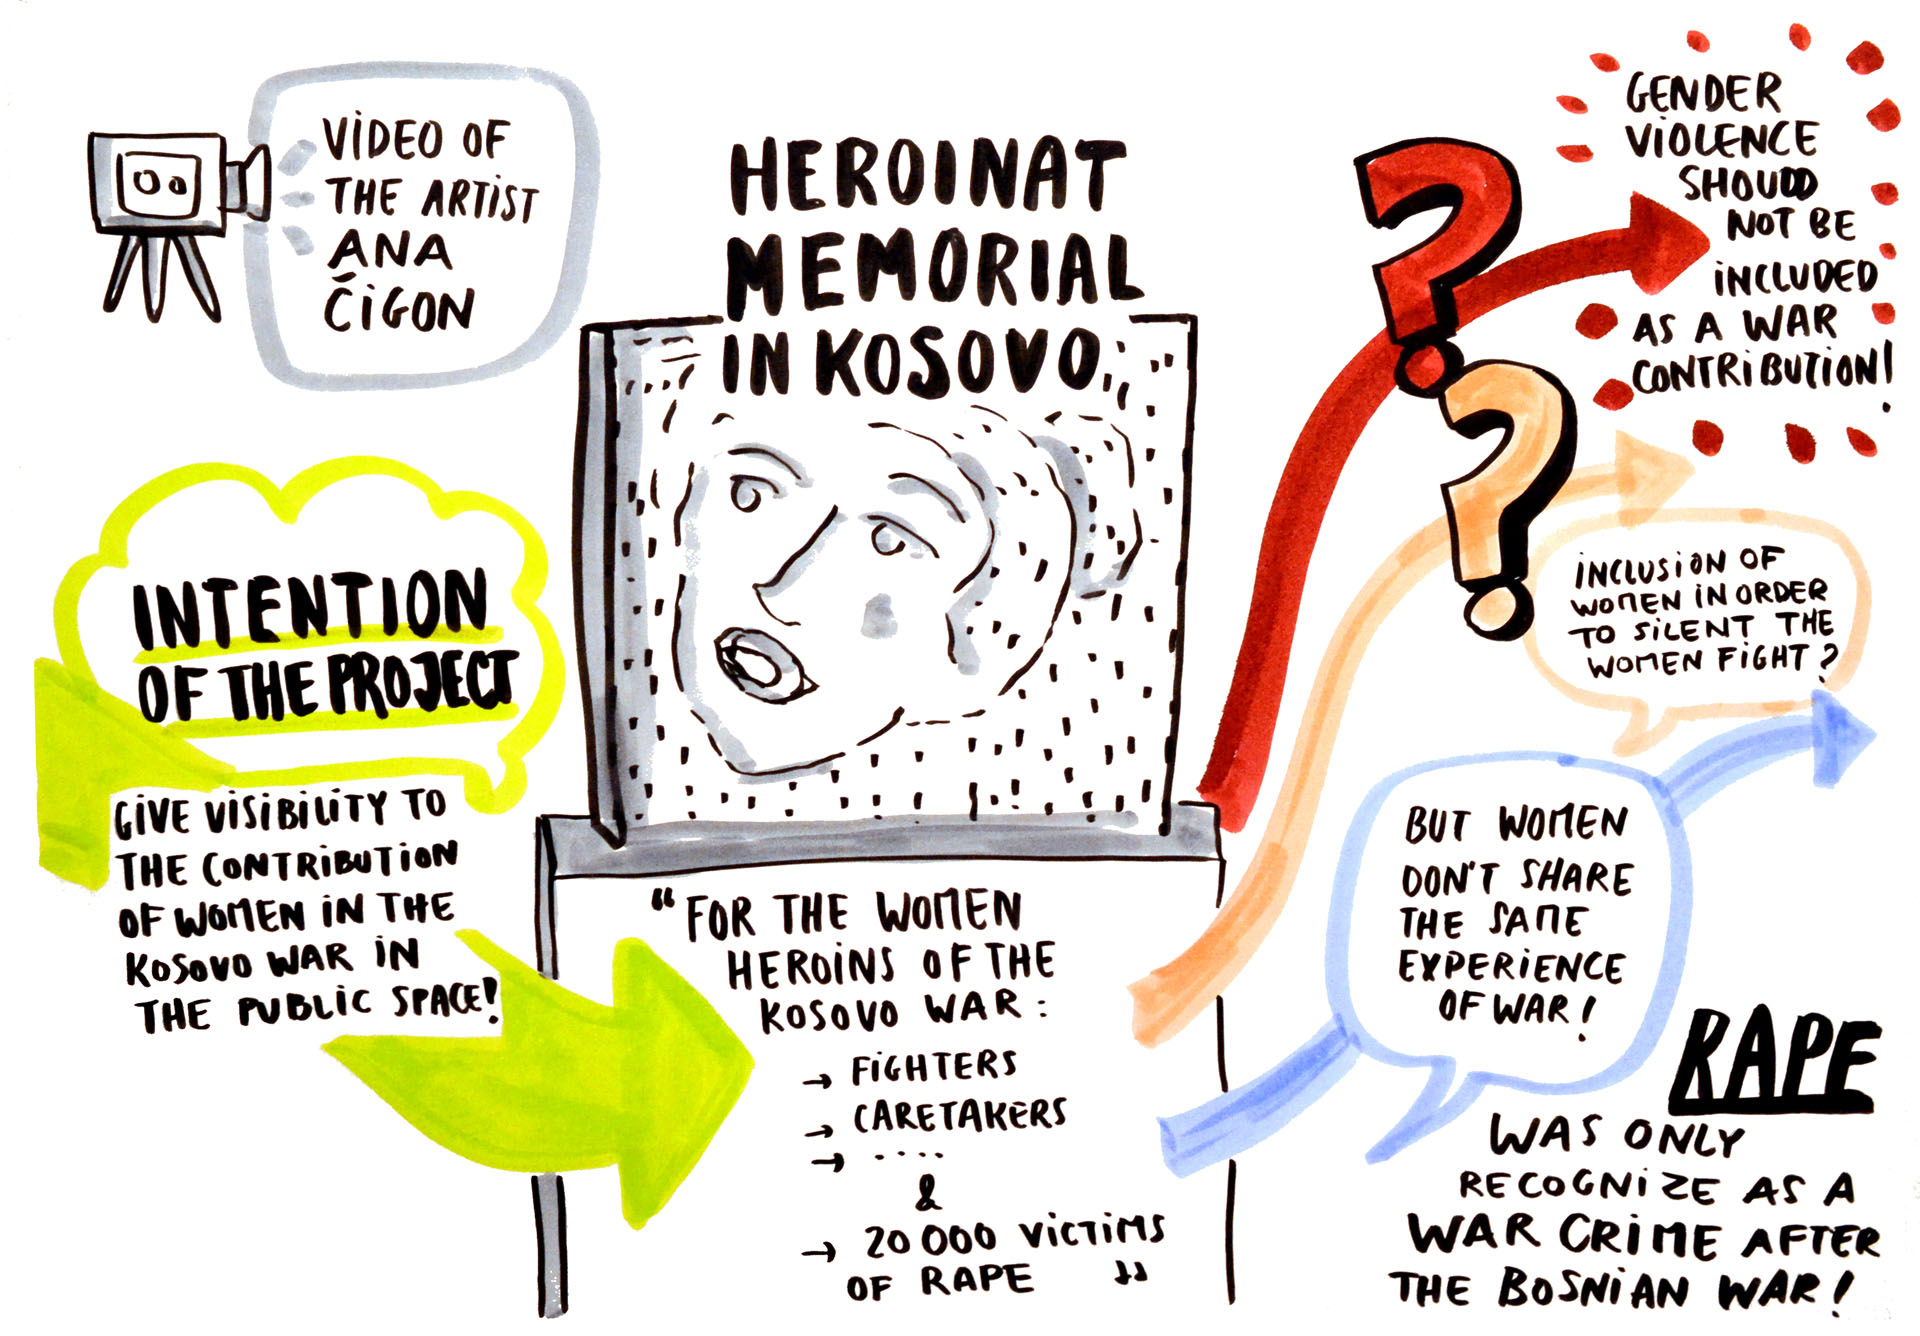 VIDEO OF
THE ARTIST
ANA
ČIGON
HEROINAT
MEMORIAL
IN KOSOVO
INTENTION
OF THE PROJECT
GIVE VISIBILITY TO
THE CONTRIBUTION
OF WOMEN IN THE
KOSOVO WAR IN
THE PUBLIC SPACE!
“FOR THE WOMEN
HEROINS OF THE
KOSOVO WAR:
→ FIGHTERS
→ CARETAKERS
→ ....
&
→ 20 000 VICTIMS
OF RAPE "
?
GENDER
VIOLENCE
SHOULD
NOT BE
INCLUDED
AS A WAR
CONTRIBUTION!
?
INCLUSION OF
WOMEN IN ORDER
TO SILENT THE
WOMEN FIGHT?
BUT WOMEN
DON'T SHARE
THE SAME
EXPERIENCE
OF WAR!
RAPE
WAS ONLY
RECOGNIZE AS A
WAR CRIME AFTER
THE BOSNIAN WAR!